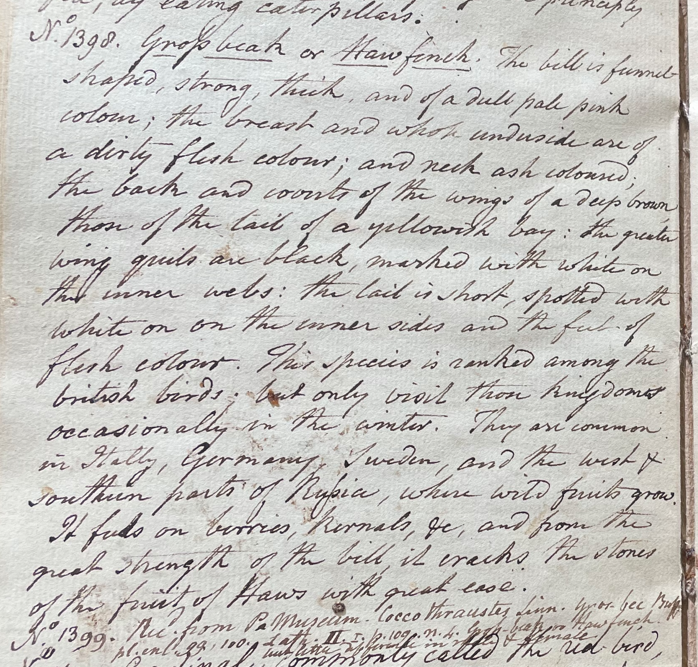 by eating caterpillars. principly
No. 1398. Grosbeak or Hawfinch. The bill is funnel
shaped, strong, thick, and of a dull pale pink
colour; the breast and whole undside are of
a dirty flesh colour; and neck ash coloured.
the back and coverts of the wings of a deep brown
those of the tail of a yellowish bay: the greater
wing quils are black, marked with white on
the inner webs: the tail is short, spotted with
white on on the inner sides and the feet of
flesh colour. This species is ranked among the
british birds; but only visit those kingdoms
occasionally in the winter. They are common
in Itally, Germany, Sweden, and the west &
southern parts of Russia, where wild fruits grow.
It feeds on berries, kernals, &c, and from the
great strength of the bill, it cracks the stones
of the fruit of Haws with great ease.
Rec. from Pa Museum. Coccothraustes Linn. Gros bec Buff
No. 1399. pl. enl. 99, 100. Lath. II. I. p. 109. n. 4. Grosbeak or Hawfinch.
but little difference in female.
commonly called the red bird,